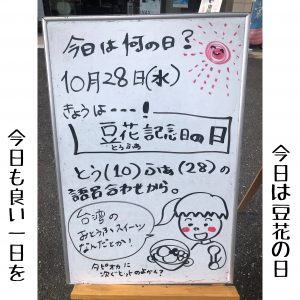 今日は何の日？
10月28日(水)
きょうは・・・！
豆花記念日の日
とうふぁ
とう(10)ふぁ(28)の
語呂合わせから。
台湾の
おとうふスイーツ
なんだとか！
タピオカに
次ぐヒットのよかん？
今日は豆花の日
今日も良い一日を